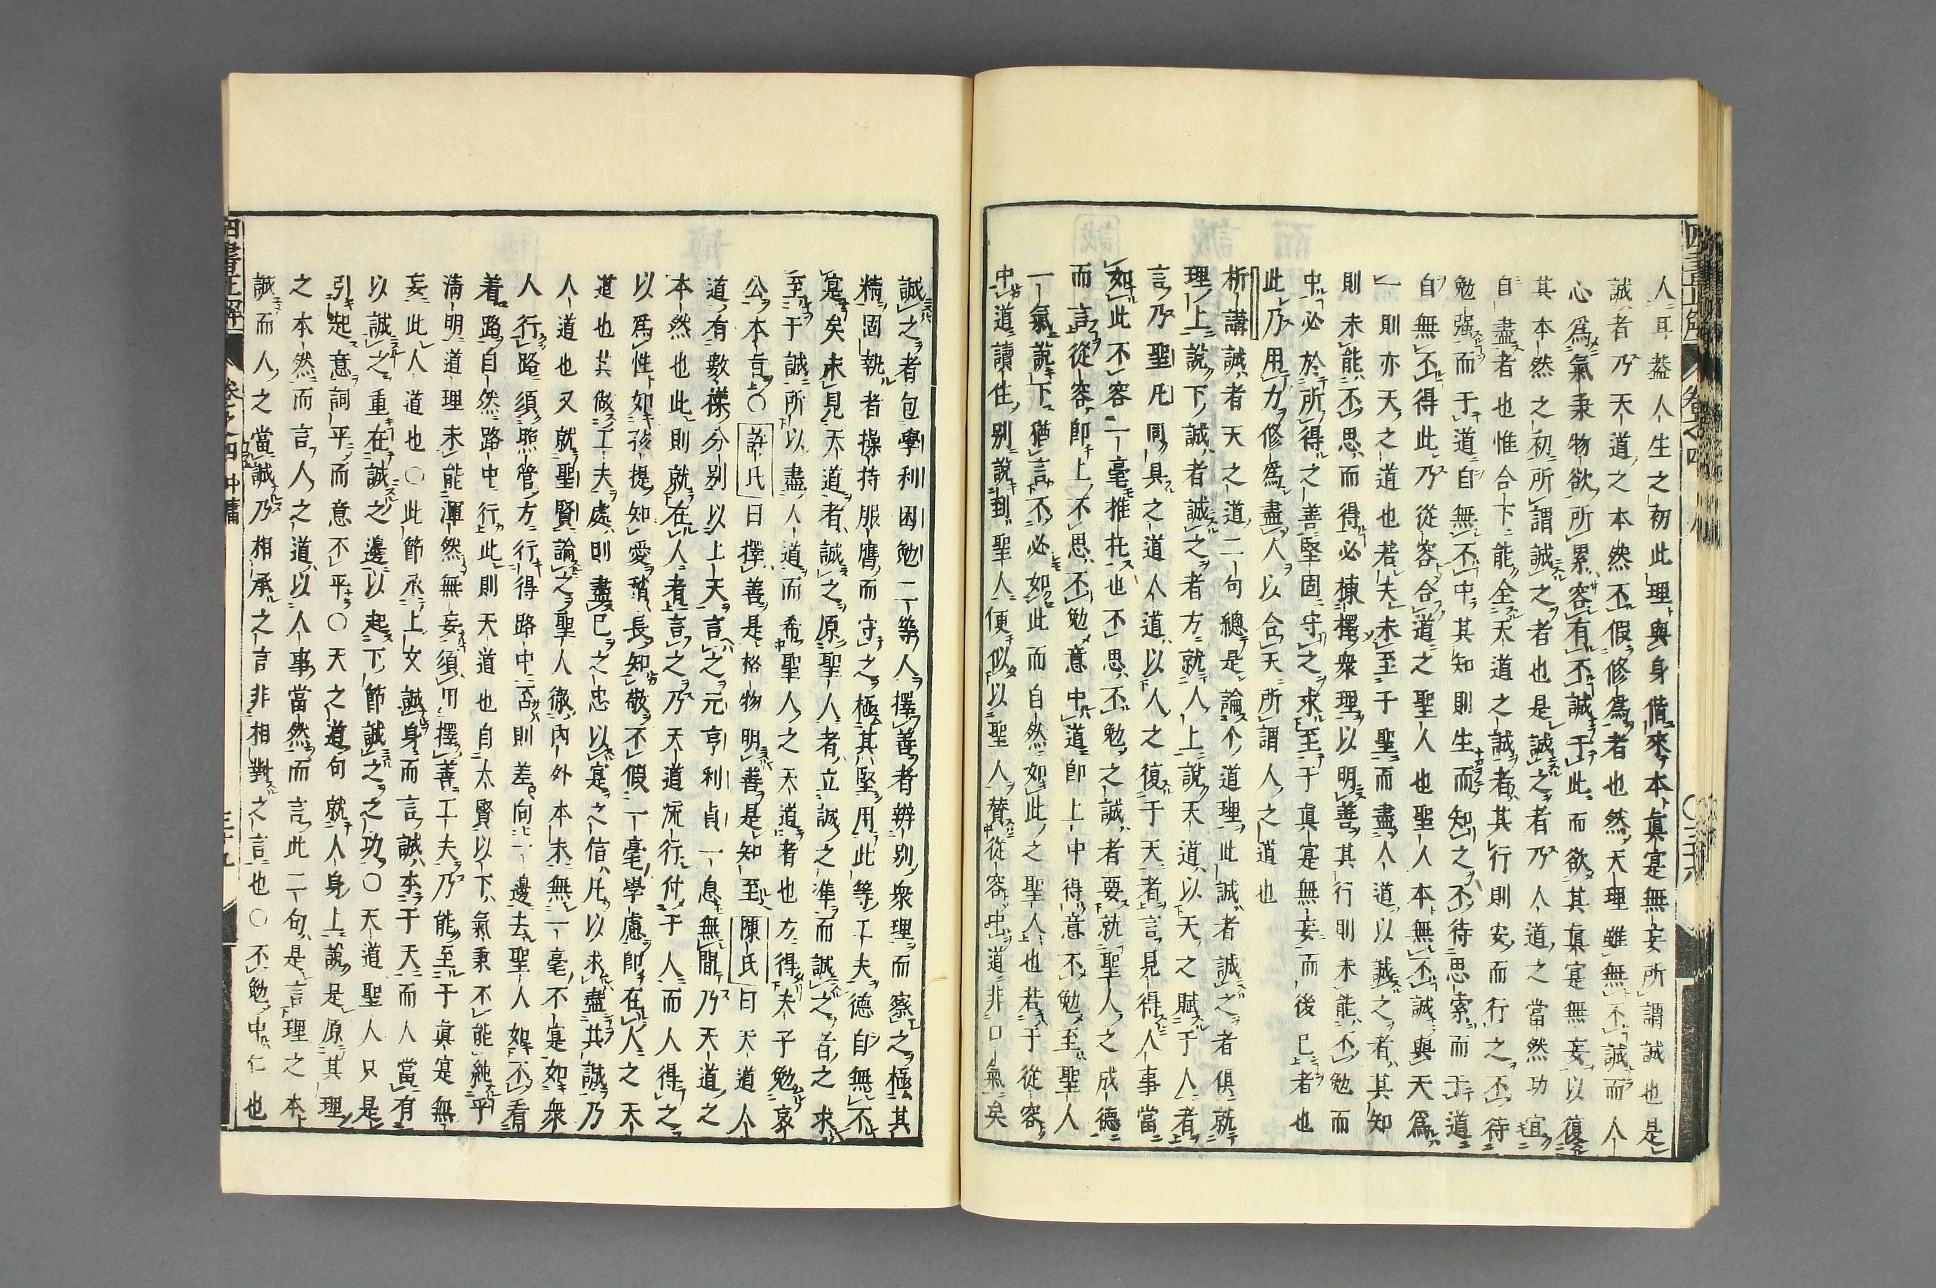 人耳蓋人生之初此理與身偕來本眞寔無妄所謂誠也是
誠者乃天道之本然不假修爲者也然天理雖無不誠而人
心爲氣秉物欲所累容有不誠于此而欲其眞寔無妄以復
其本然之初所謂誠之者也是誠之者乃人道之當然功宜
自盡者也惟合下能全天道之誠者其行則安而行之不待
勉强而于道自無不中其知則生而知之不待思索而于道
自無不得此乃從容合道之聖人也聖人本無不誠與天爲
一則亦天之道也若夫未至于聖而盡人道以誠之者其知
則未能不思而得必揀擇衆理以明善其行則未能不勉而
中必於所得之善堅固守之求至于眞寔無妄而後已者也
此乃用力修爲盡人以合天所謂人之道也
析講誠者天之道二句總是論个道理此誠者誠之者俱就
理上說下誠者誠之者方就人上說天道以天之賦于人者
言乃聖凡同具之道人道以人之復于天者言見得人事當
如此不容一毫推托也不思不勉之誠者要就聖人之成德
而言從容卽上不思不勉意中道卽上中得意不勉至聖人
一氣說下猶言不必如此而自然如此之聖人也若于從容
中道讀住別說到聖人便似以聖人贊從容中道非口氣矣
誠之者包學利困勉二等人擇善者辨別衆理而察之極其
精固執者操持服膺而守之極其堅用此等工夫德自無不
寔矣未見天道者誠之原聖人者立誠之準而誠之者之求
至于誠所以盡人道而希聖人之天道者也方得夫子勉哀
公本言○許氏曰擇善是格物明善是知至陳氏曰天道人
道有數樣分別以上天言之元亨利貞一息無間乃天道之
本然也此則就在人者言之乃天道流行付于人而人得之
以爲性如孩提知愛稍長知敬不假一毫學慮卽在人之天
道也其做工夫處則盡己之忠以寔之信凡以求盡其誠乃
人道也又就聖賢論之聖人徹內外本末無一毫不寔如衆
人行路須照管方行得路中否則差向一邊去聖人如不看
着路自然路中行此則天道也自大賢以下氣秉不能純乎
淸明道理未能渾然無妄須用擇善工夫乃能至于眞寔無
妄此人道也○此節承上文誠身而言誠本于天而人當有
以誠之重在誠之邊以起下節誠之之功○天道聖人只是
引起意詞平而意不平○天之道句就人身上說是原其理
之本然而言人之道以人事當然而言此二句是言理之本
誠而人之當誠乃相承之言非相對之言也○不勉中仁也
四書正解
卷之四中庸
三十九